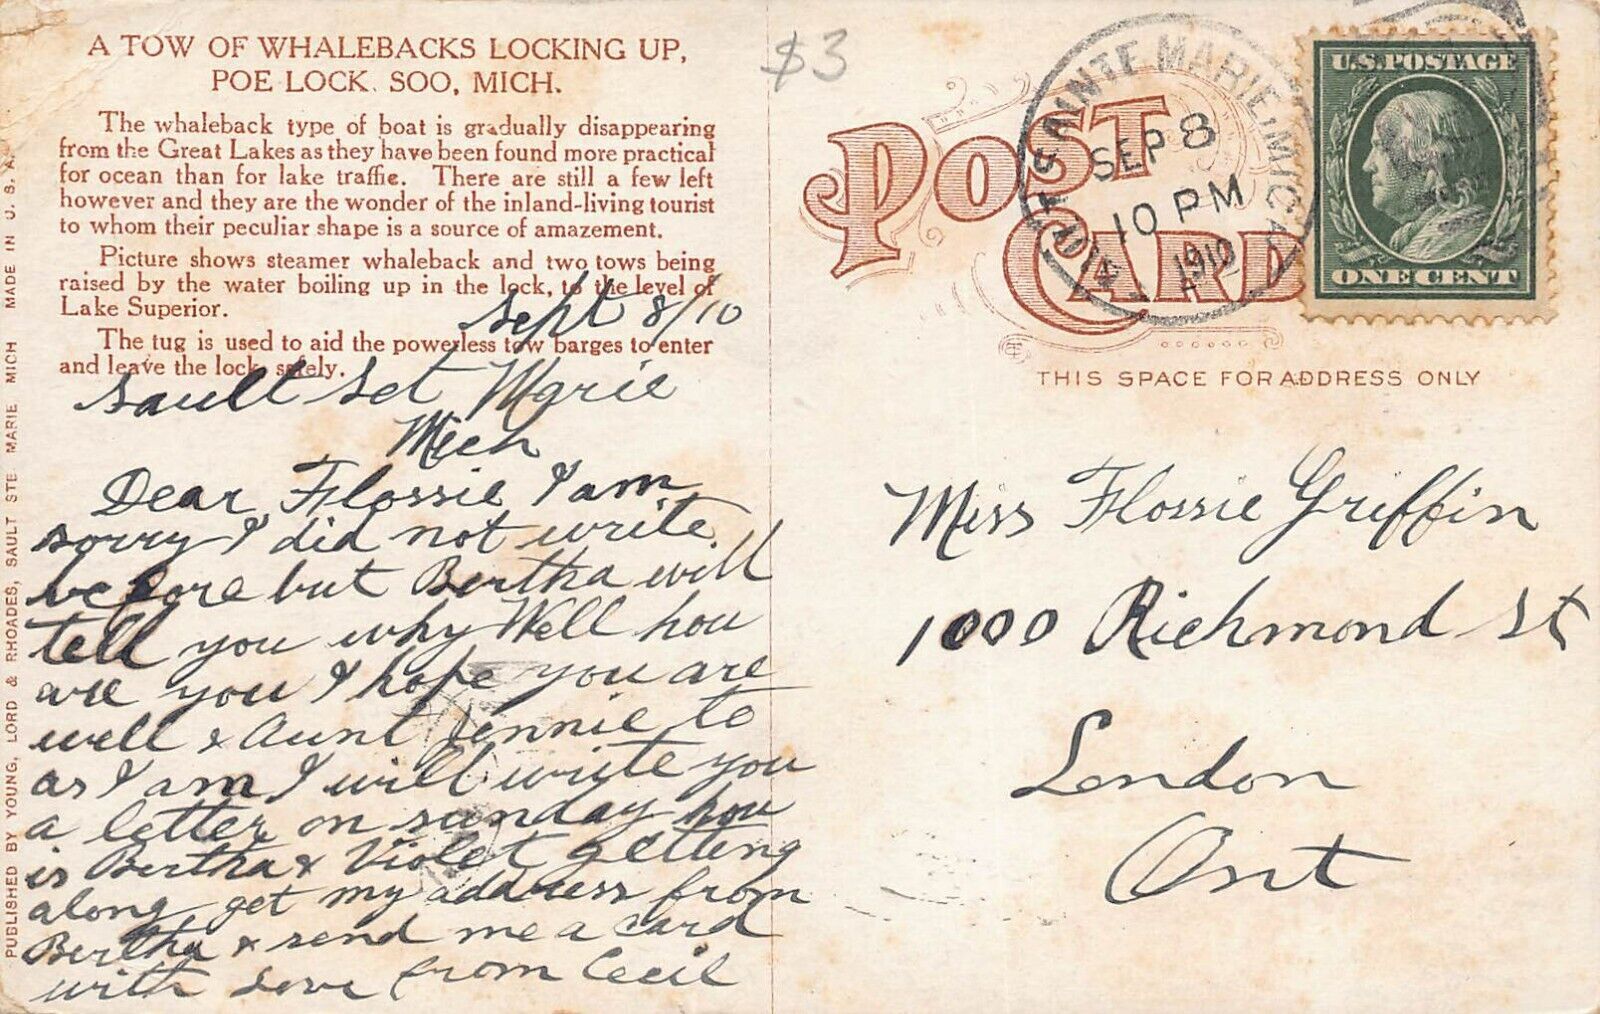 A TOW OF WHALEBACKS LOCKING UP,
POE LOCK, SOO, MICH.
The whaleback type of boat is gradually disappearing
from the Great Lakes as they have been found more practical
for ocean than for lake traffic. There are still a few left
however and they are the wonder of the inland-living tourist
to whom their peculiar shape is a source of amazement.
Picture shows steamer whaleback and two tows being
raised by the water boiling up in the lock, to the level of
Lake Superior.
The tug is used to aid the powerless tow barges to enter
and leave the lock safely.
PUBLISHED BY YOUNG, LORD & RHOADES, SAULT STE MARIE MICH MADE IN U. S. A.
Sept 8/10
Sault Set Marie
Mich
Dear Flossie I am
sorry I did not write
before but Bertha will
tell you why Well how
are you I hope you are
well & Aunt Jennie to
as I am I will write you
a letter on sunday how
is Bertha & Violet getting
along get my address from
Bertha & send me a card
with love from Cecil
$3
POST CARD
SAULT SAINTE MARIE, MICH.
SEP 8
10 PM
1910
U.S. POSTAGE
ONE CENT
THIS SPACE FOR ADDRESS ONLY
Miss Flossie Griffin
1000 Richmond St
London
Ont